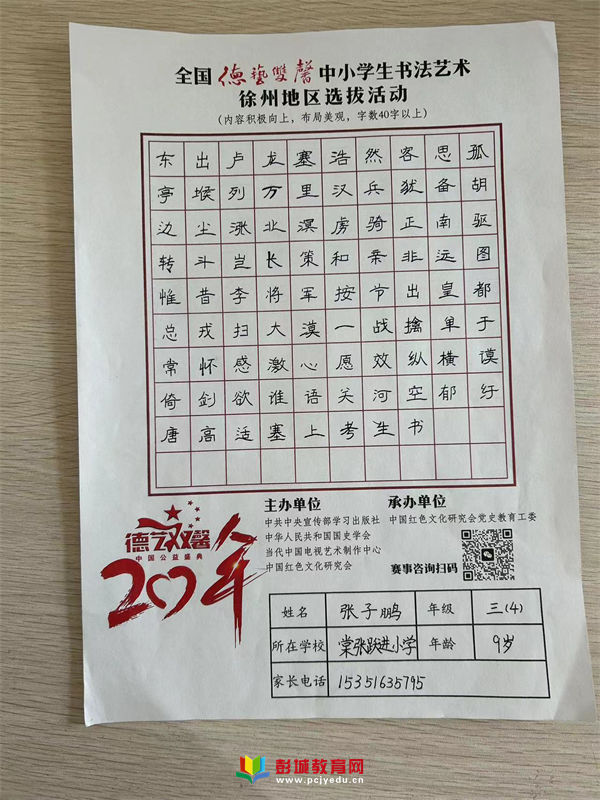 全国德艺雙馨中小学生书法艺术
徐州地区选拔活动
(内容积极向上，布局美观，字数40字以上)
东出卢龙塞浩然客思孤
亭堠列万里汉兵犹备胡
边尘涨北溟虏骑正南驱
转斗岂长策和亲非远图
惟昔李将军按节出皇都
总戎扫大漠一战擒单于
常怀感激心愿效纵横谟
倚剑欲谁语关河空郁纡
唐高适塞上考生书
德艺双馨
中国公益盛典
20年
主办单位
中共中央宣传部学习出版社
中华人民共和国国史学会
当代中国电视艺术制作中心
中国红色文化研究会
承办单位
中国红色文化研究会党史教育工委
赛事咨询扫码
姓名 张子鹏 年级 三(4)
所在学校 棠张跃进小学 年龄 9岁
家长电话 15351635795
彭城教育网
www.pcjyedu.cn